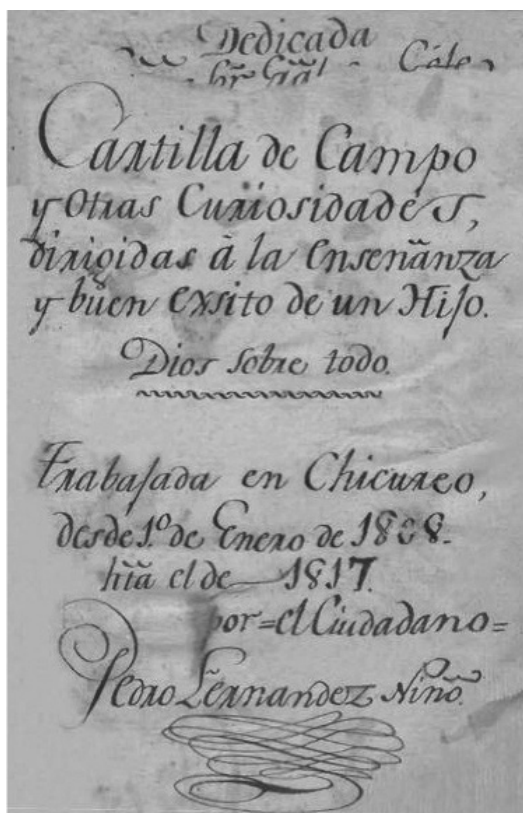 Dedicada
Cartilla de Campo
y Otras CuriosidadeS,
dirigidas à la Enseñanza
y buen exsito de un Hijo.
Dios sobre todo.
Trabajada en Chicureo,
desde 1.º de Enero de 1808.
htã el de 1817.
por = el Ciudadano =
Pedro Fernandez Niño.